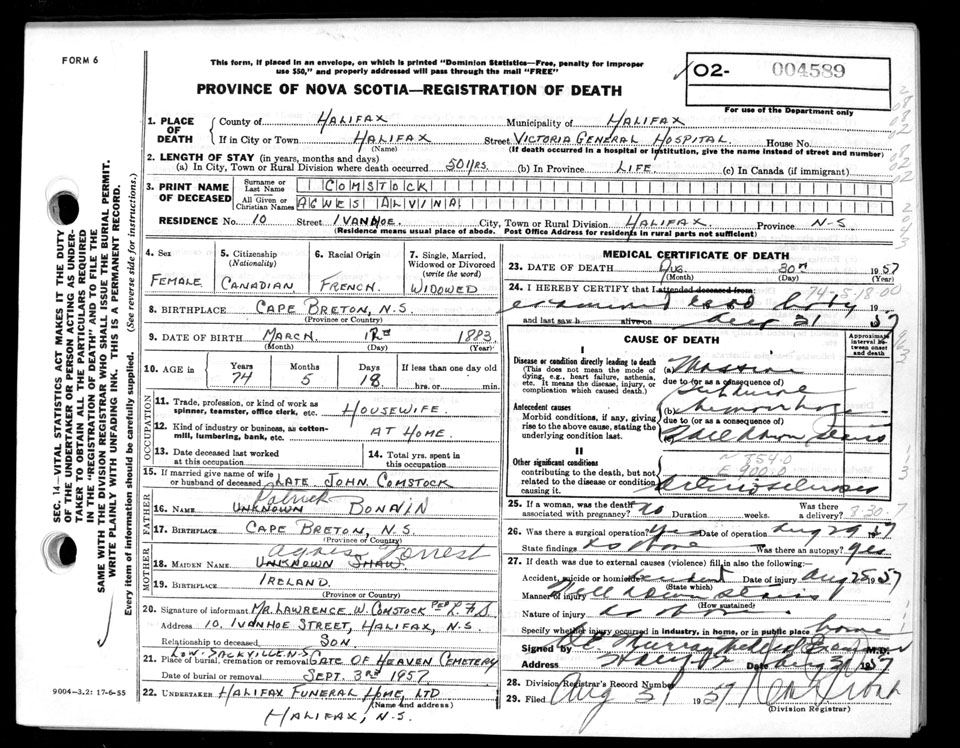 FORM 6
This form, if placed in an envelope, on which is printed "Dominion Statistics—Free, penalty for improper
use $50," and properly addressed will pass through the mail "FREE"
02- 004589
For use of the Department only
PROVINCE OF NOVA SCOTIA—REGISTRATION OF DEATH
1. PLACE OF DEATH County of HALIFAX Municipality of HALIFAX
If in City or Town HALIFAX Street VICTORIA GENERAL HOSPITAL House No.
(Name) (If death occurred in a hospital or institution, give the name instead of street and number)
2. LENGTH OF STAY (in years, months and days)
(a) In City, Town or Rural Division where death occurred 50 YRS. (b) In Province LIFE. (c) In Canada (if immigrant)
3. PRINT NAME OF DECEASED Surname or Last Name COMSTOCK
All Given or Christian Names AGNES ALVINA
RESIDENCE No. 10 Street IVANHOE. City, Town or Rural Division HALIFAX. Province N-S
(Residence means usual place of abode. Post Office Address for residents in rural parts not sufficient)
4. Sex FEMALE
5. Citizenship (Nationality) CANADIAN
6. Racial Origin FRENCH.
7. Single, Married, Widowed or Divorced (write the word) WIDOWED
8. BIRTHPLACE CAPE BRETON, N.S.
(Province or Country)
9. DATE OF BIRTH MARCH 1883
(Month) (Day) (Year)
10. AGE in Years 74 Months 5 Days 18 If less than one day old hrs. or min.
OCCUPATION
11. Trade, profession, or kind of work as spinner, teamster, office clerk, etc. HOUSEWIFE.
12. Kind of industry or business, as cotton-mill, lumbering, bank, etc. AT HOME.
13. Date deceased last worked at this occupation
14. Total yrs. spent in this occupation
15. If married give name of wife or husband of deceased LATE JOHN COMSTOCK
FATHER
Patrick
16. NAME UNKNOWN BONAIN
17. BIRTHPLACE CAPE BRETON, N.S.
(Province or Country)
MOTHER
Agness Forrest
18. MAIDEN NAME UNKNOWN SHAW
19. BIRTHPLACE IRELAND.
(Province or Country)
20. Signature of informant MR. LAWRENCE W. COMSTOCK PER R.F.S
Address 10. IVANHOE STREET, HALIFAX, N.S.
Relationship to deceased SON
LOW. SACKVILLE. N.S.
21. Place of burial, cremation or removal GATE OF HEAVEN CEMETERY
Date of burial or removal SEPT. 3RD 1957
22. UNDERTAKER HALIFAX FUNERAL HOME, LTD
(Name and address)
HALIFAX, N.S.
MEDICAL CERTIFICATE OF DEATH
23. DATE OF DEATH Aug. 30TH 1957
(Month) (Day) (Year)
24. I HEREBY CERTIFY that I attended deceased from: 74-5-18 00
examined body 19
and last saw h alive on Aug 31 1957
CAUSE OF DEATH
Approximate interval between onset and death
I
Disease or condition directly leading to death
(This does not mean the mode of dying, e.g., heart failure, asthenia, etc. It means the disease, injury, or complication which caused death.)
(a) Massive
due to (or as a consequence of)
subdural
Antecedent causes
Morbid conditions, if any, giving rise to the above cause, stating the underlying condition last.
(b) hemorrhage
due to (or as a consequence of)
Fall down stairs
N 854.0
E 900.0
II
Other significant conditions
contributing to the death, but not related to the disease or condition causing it.
Arteriosclerosis
25. If a woman, was the death associated with pregnancy? no Duration weeks. Was there a delivery?
3-30-7
26. Was there a surgical operation? Yes Date of operation Aug 29 1957
State findings as above Was there an autopsy? yes
27. If death was due to external causes (violence) fill in also the following:
Accident, suicide or homicide accident Date of injury Aug 28 1957
(State which)
Manner of injury Fell down stairs
(How sustained)
Nature of injury as above
Specify whether injury occurred in industry, in home, or in public place home
Signed by Murray M.D.
Address Halifax Date Aug 31 1957
28. Division Registrar's Record Number
29. Filed Aug 31 1957
(Division Registrar)
SEC. 14—VITAL STATISTICS ACT MAKES IT THE DUTY
OF THE UNDERTAKER OR PERSON ACTING AS UNDER-
TAKER TO OBTAIN ALL THE PARTICULARS REQUIRED
IN THE "REGISTRATION OF DEATH" AND TO FILE THE
SAME WITH THE DIVISION REGISTRAR WHO SHALL ISSUE THE BURIAL PERMIT.
WRITE PLAINLY WITH UNFADING INK. THIS IS A PERMANENT RECORD.
Every item of information should be carefully supplied. (See reverse side for instructions.)
9004-3.2: 17-6-55